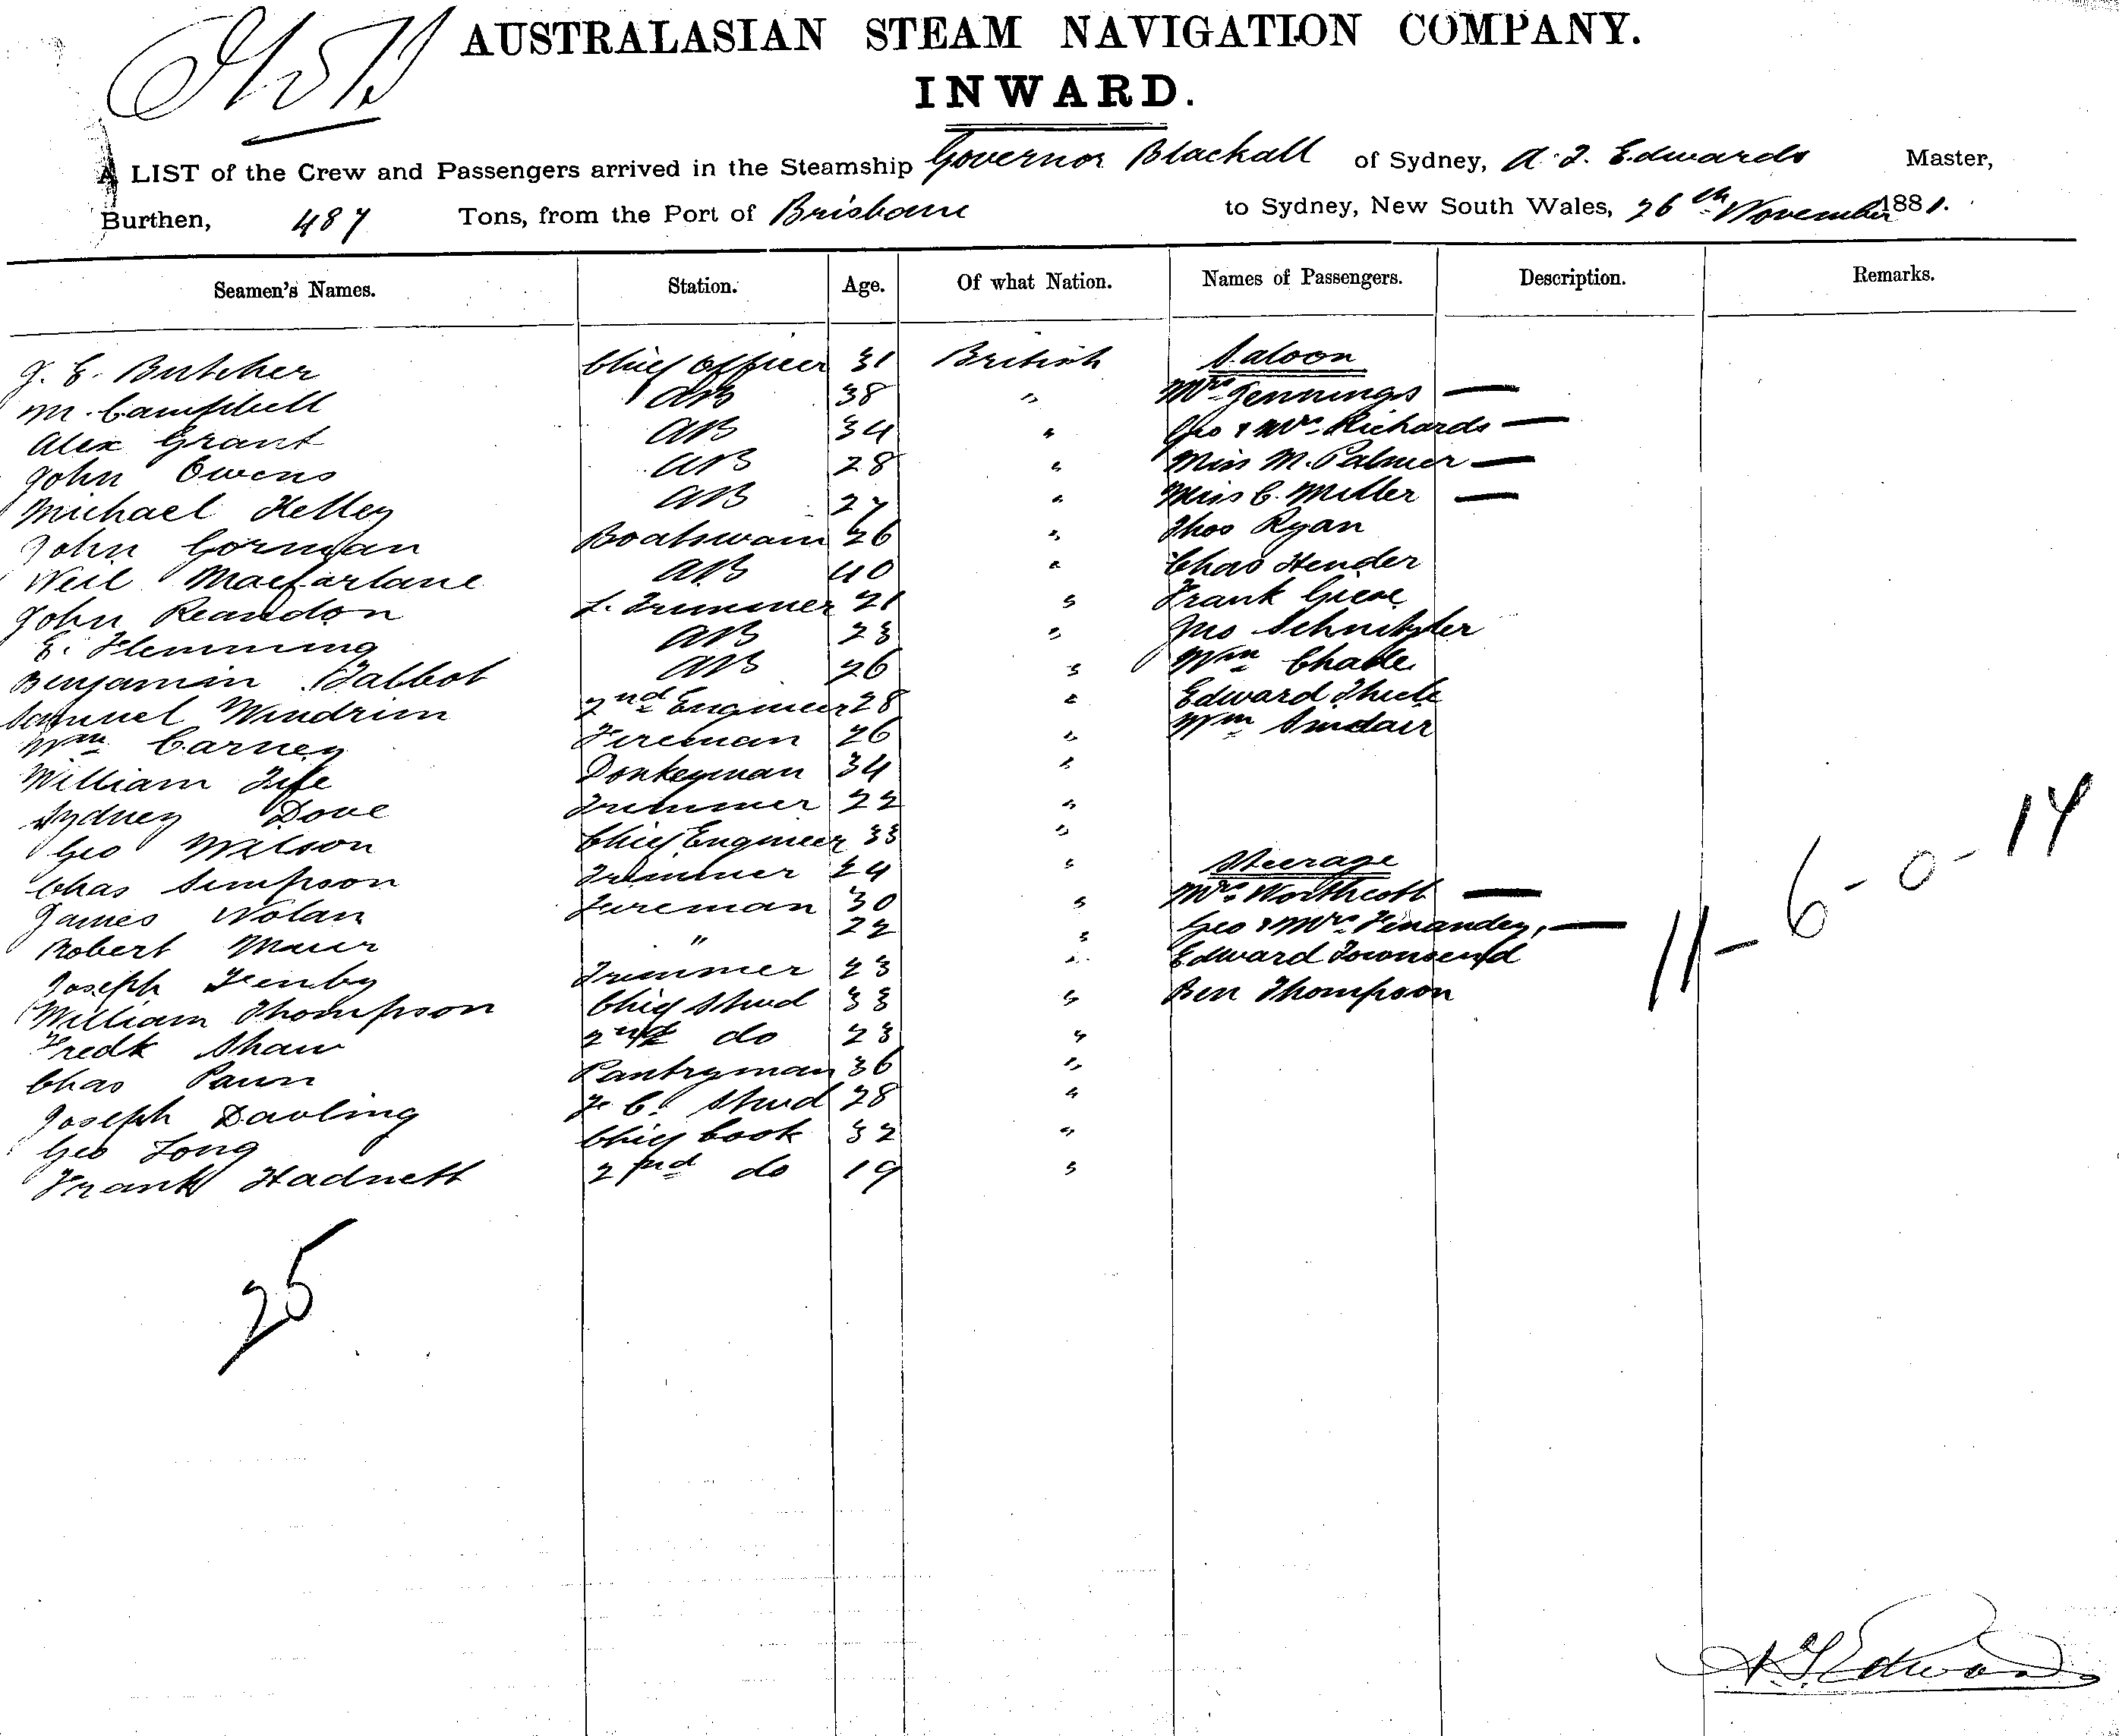 AUSTRALASIAN STEAM NAVIGATION COMPANY.
INWARD.
A LIST of the Crew and Passengers arrived in the Steamship Governor Blackall of Sydney, A. T. Edwards Master,
Burthen, 487 Tons, from the Port of Brisbane to Sydney, New South Wales, 26th November 1881.
Seamen's Names. Station. Age. Of what Nation. Names of Passengers. Description. Remarks.
J. E. Butcher Chief Officer 31 British Saloon
M. Campbell AB 38 " Mrs Jennings —
Alex Grant AB 34 " Geo & Mrs Richards —
John Owens AB 28 " Miss M. Palmer —
Michael Kelley AB 27 " Miss C. Miller —
John Gorman Boatswain 26 " Thos Ryan
Neil Macfarlane AB 40 " Chas Hender
John Reardon L. Trimmer 21 " Frank
E. Flemming AB 23 " Jno Schnitzler
Benjamin Talbot AB 26 " Wm
Samuel Windrim 2nd Engineer 28 " Edward Thiele
Wm Carney Fireman 26 " Wm Sinclair
William Fife Donkeyman 34 "
Sydney Dove Trimmer 22 "
Geo Wilson Chief Engineer 33 "
Chas Simpson Trimmer 24 " Steerage
James Nolan Fireman 30 " Mrs Northcott —
Robert " 22 " Geo & Mrs —
Joseph Trimmer 23 " Edward Townsend
William Thompson Chief Stwd 33 " Ben Thompson
Fredk Shaw 2nd do 23 "
Chas Pantryman 36 "
Joseph Davling F. C. Stwd 28 "
Geo Long Chief Cook 32 "
Frank Hadnett 2nd do 19 "
11 - 6 - 0 - 14
25
A T Edwards